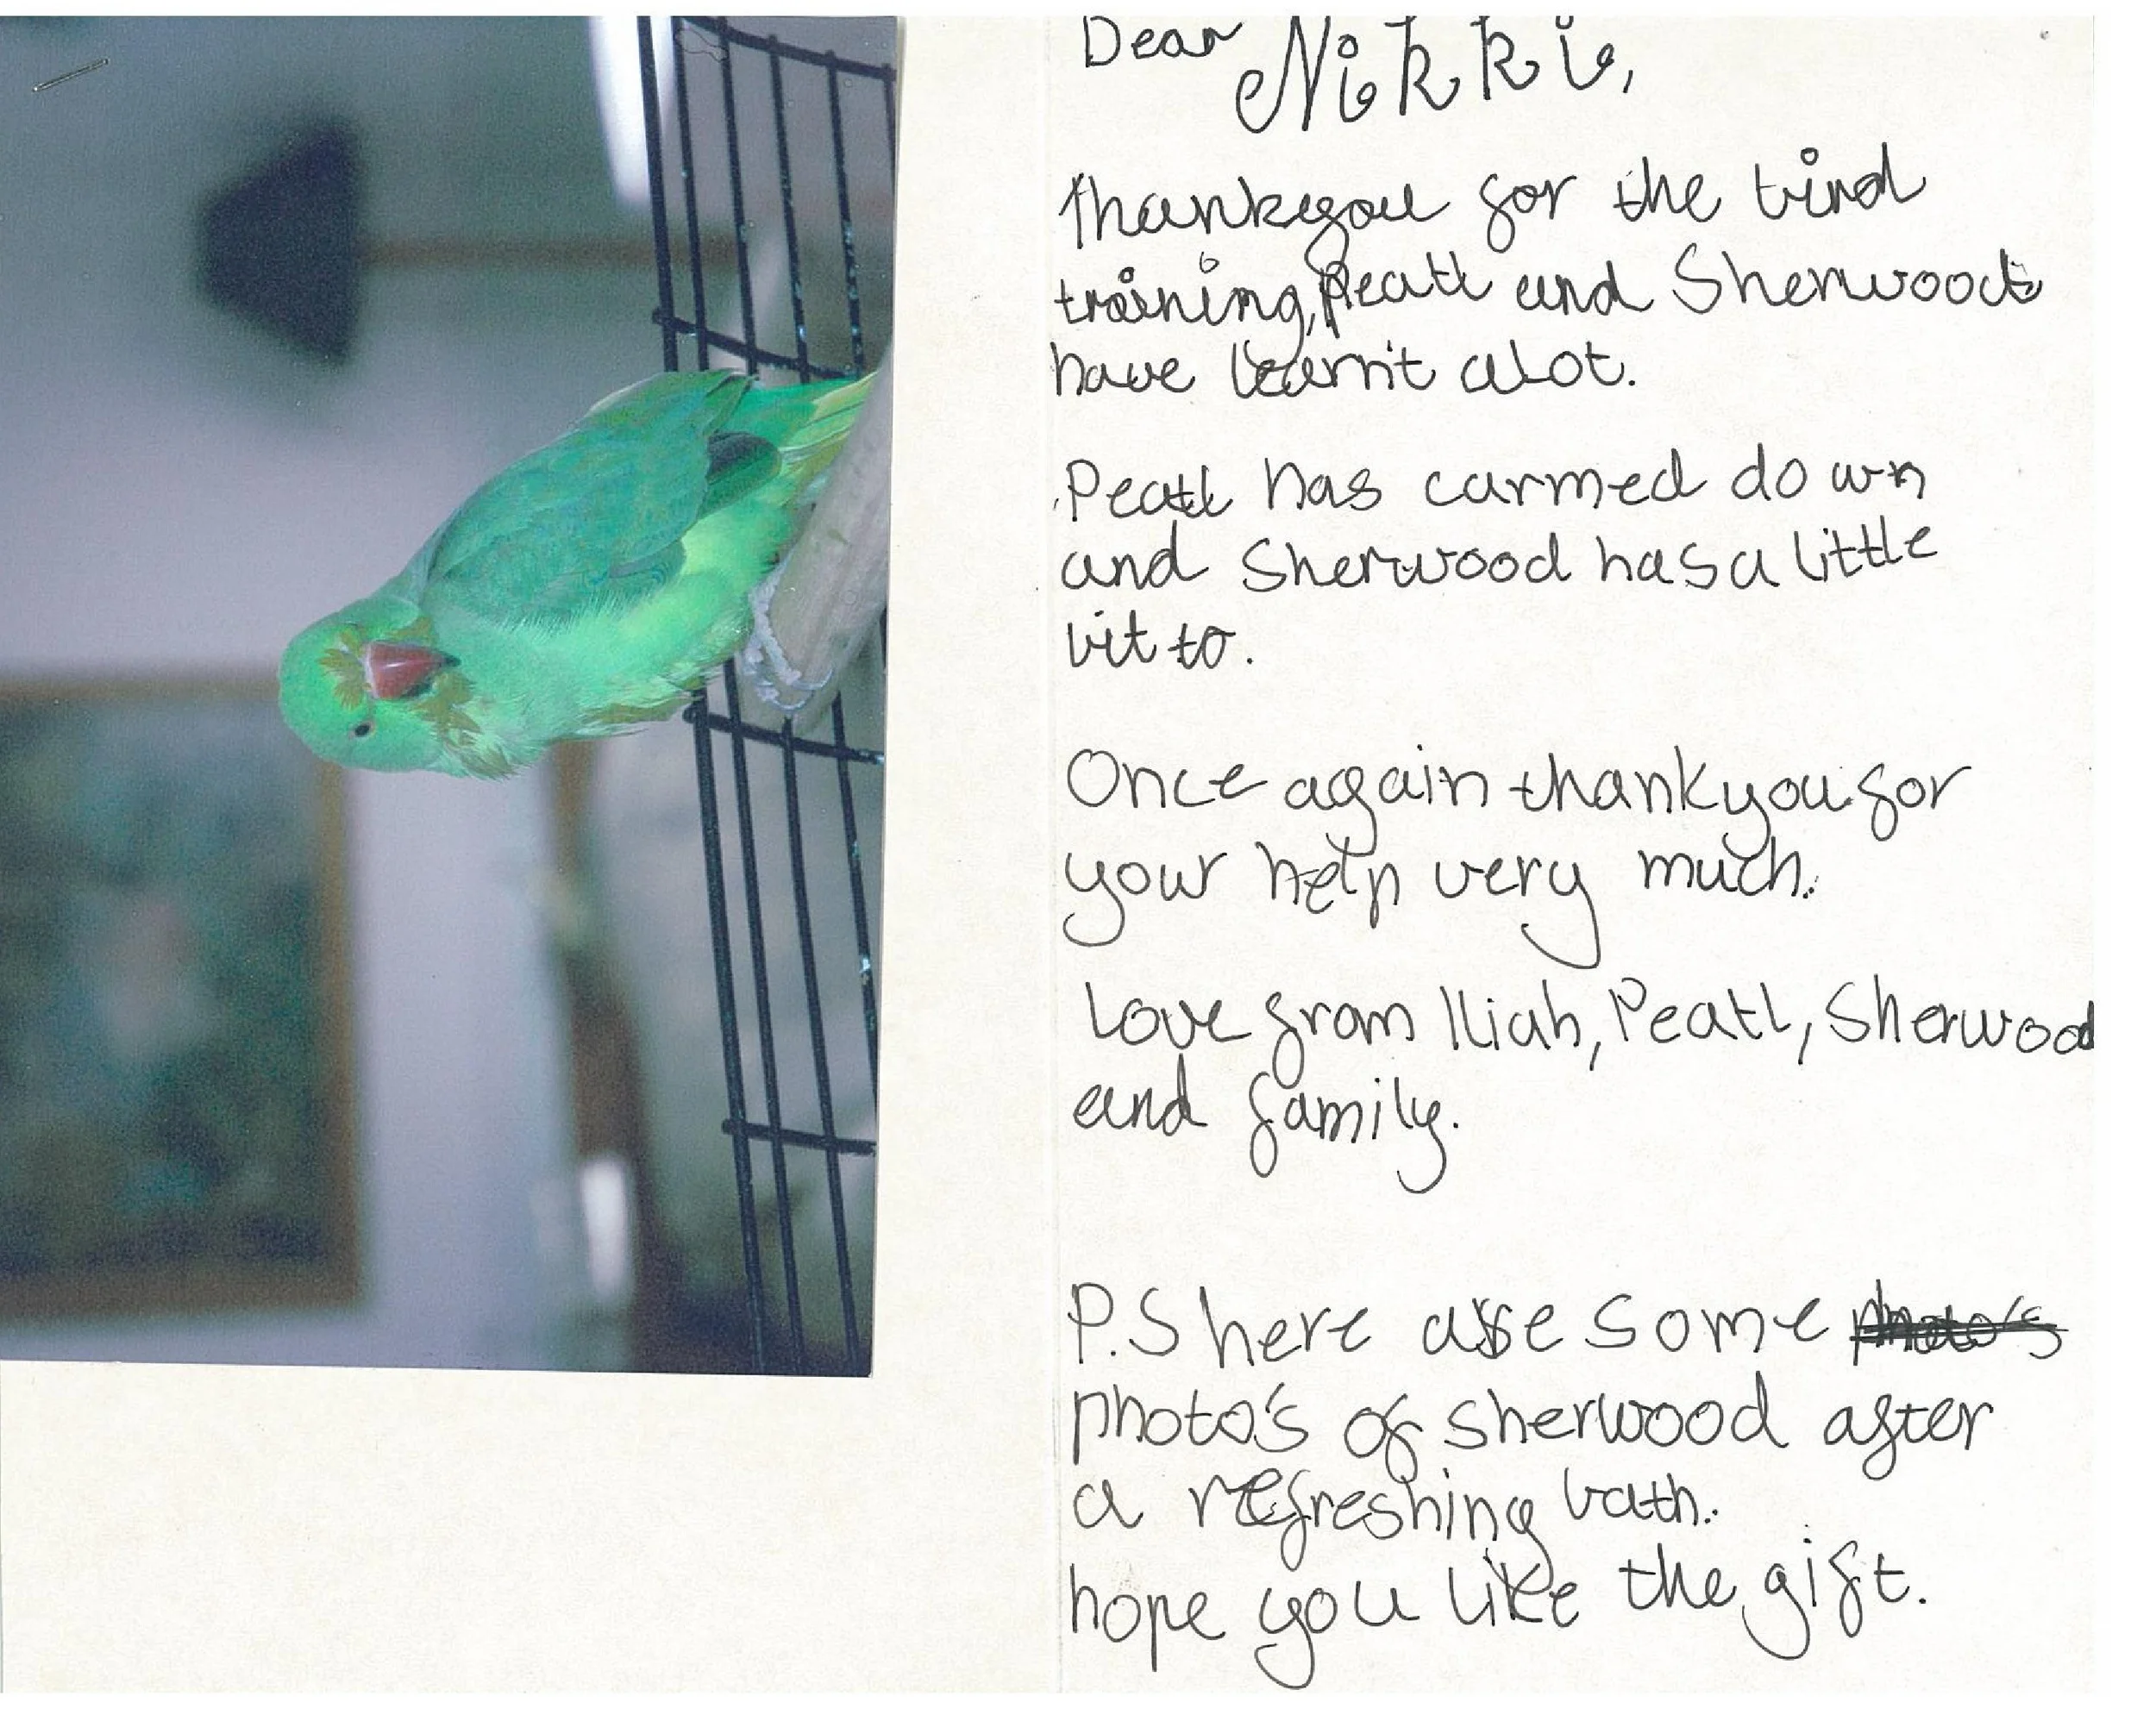 Dear Nikki,
thankyou for the bird
training, Peatl and Sherwood
have learnt alot.
Peatl has carmed down
and Sherwood has a little
bit to.
Once again thankyou for
your help very much.
Love from Iliah, Peatl, Sherwood
and family.
P.S here are some photo's
photo's of sherwood after
a refreshing bath.
hope you like the gift.